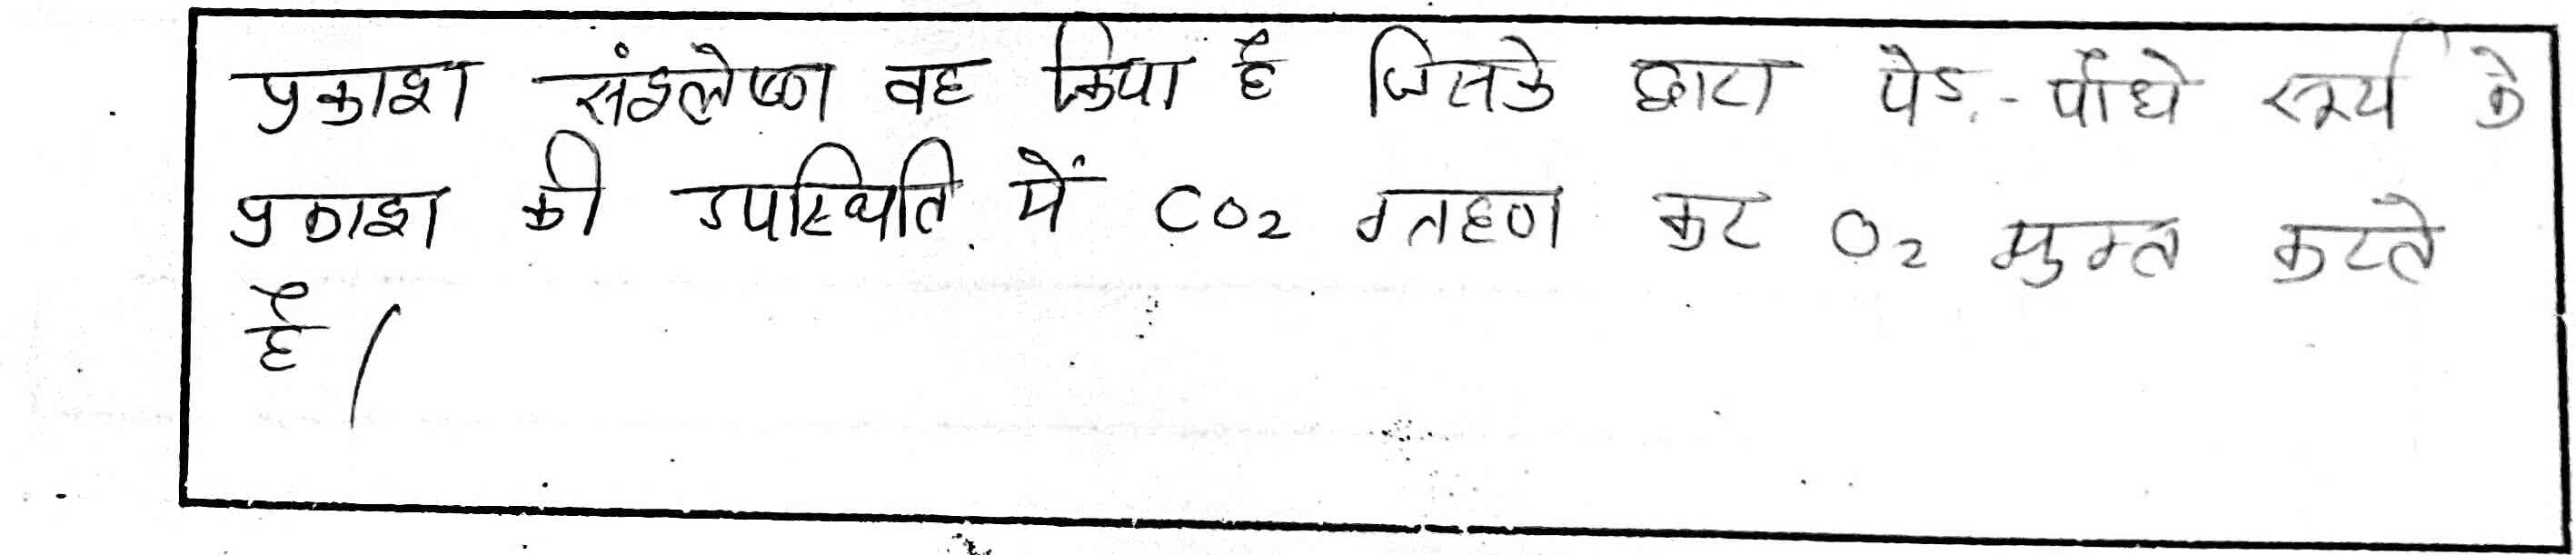 प्रकाश संश्लेषण वह क्रिया है जिसके द्वारा पेड़-पौधे सूर्य के
प्रकाश की उपस्थिति में CO₂ ग्रहण कर O₂ मुक्त करते
है।